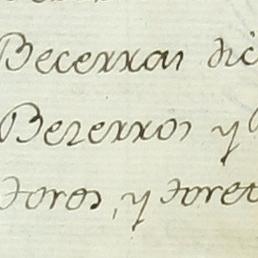 Becerras dic
Bezerros y
toros, y toret